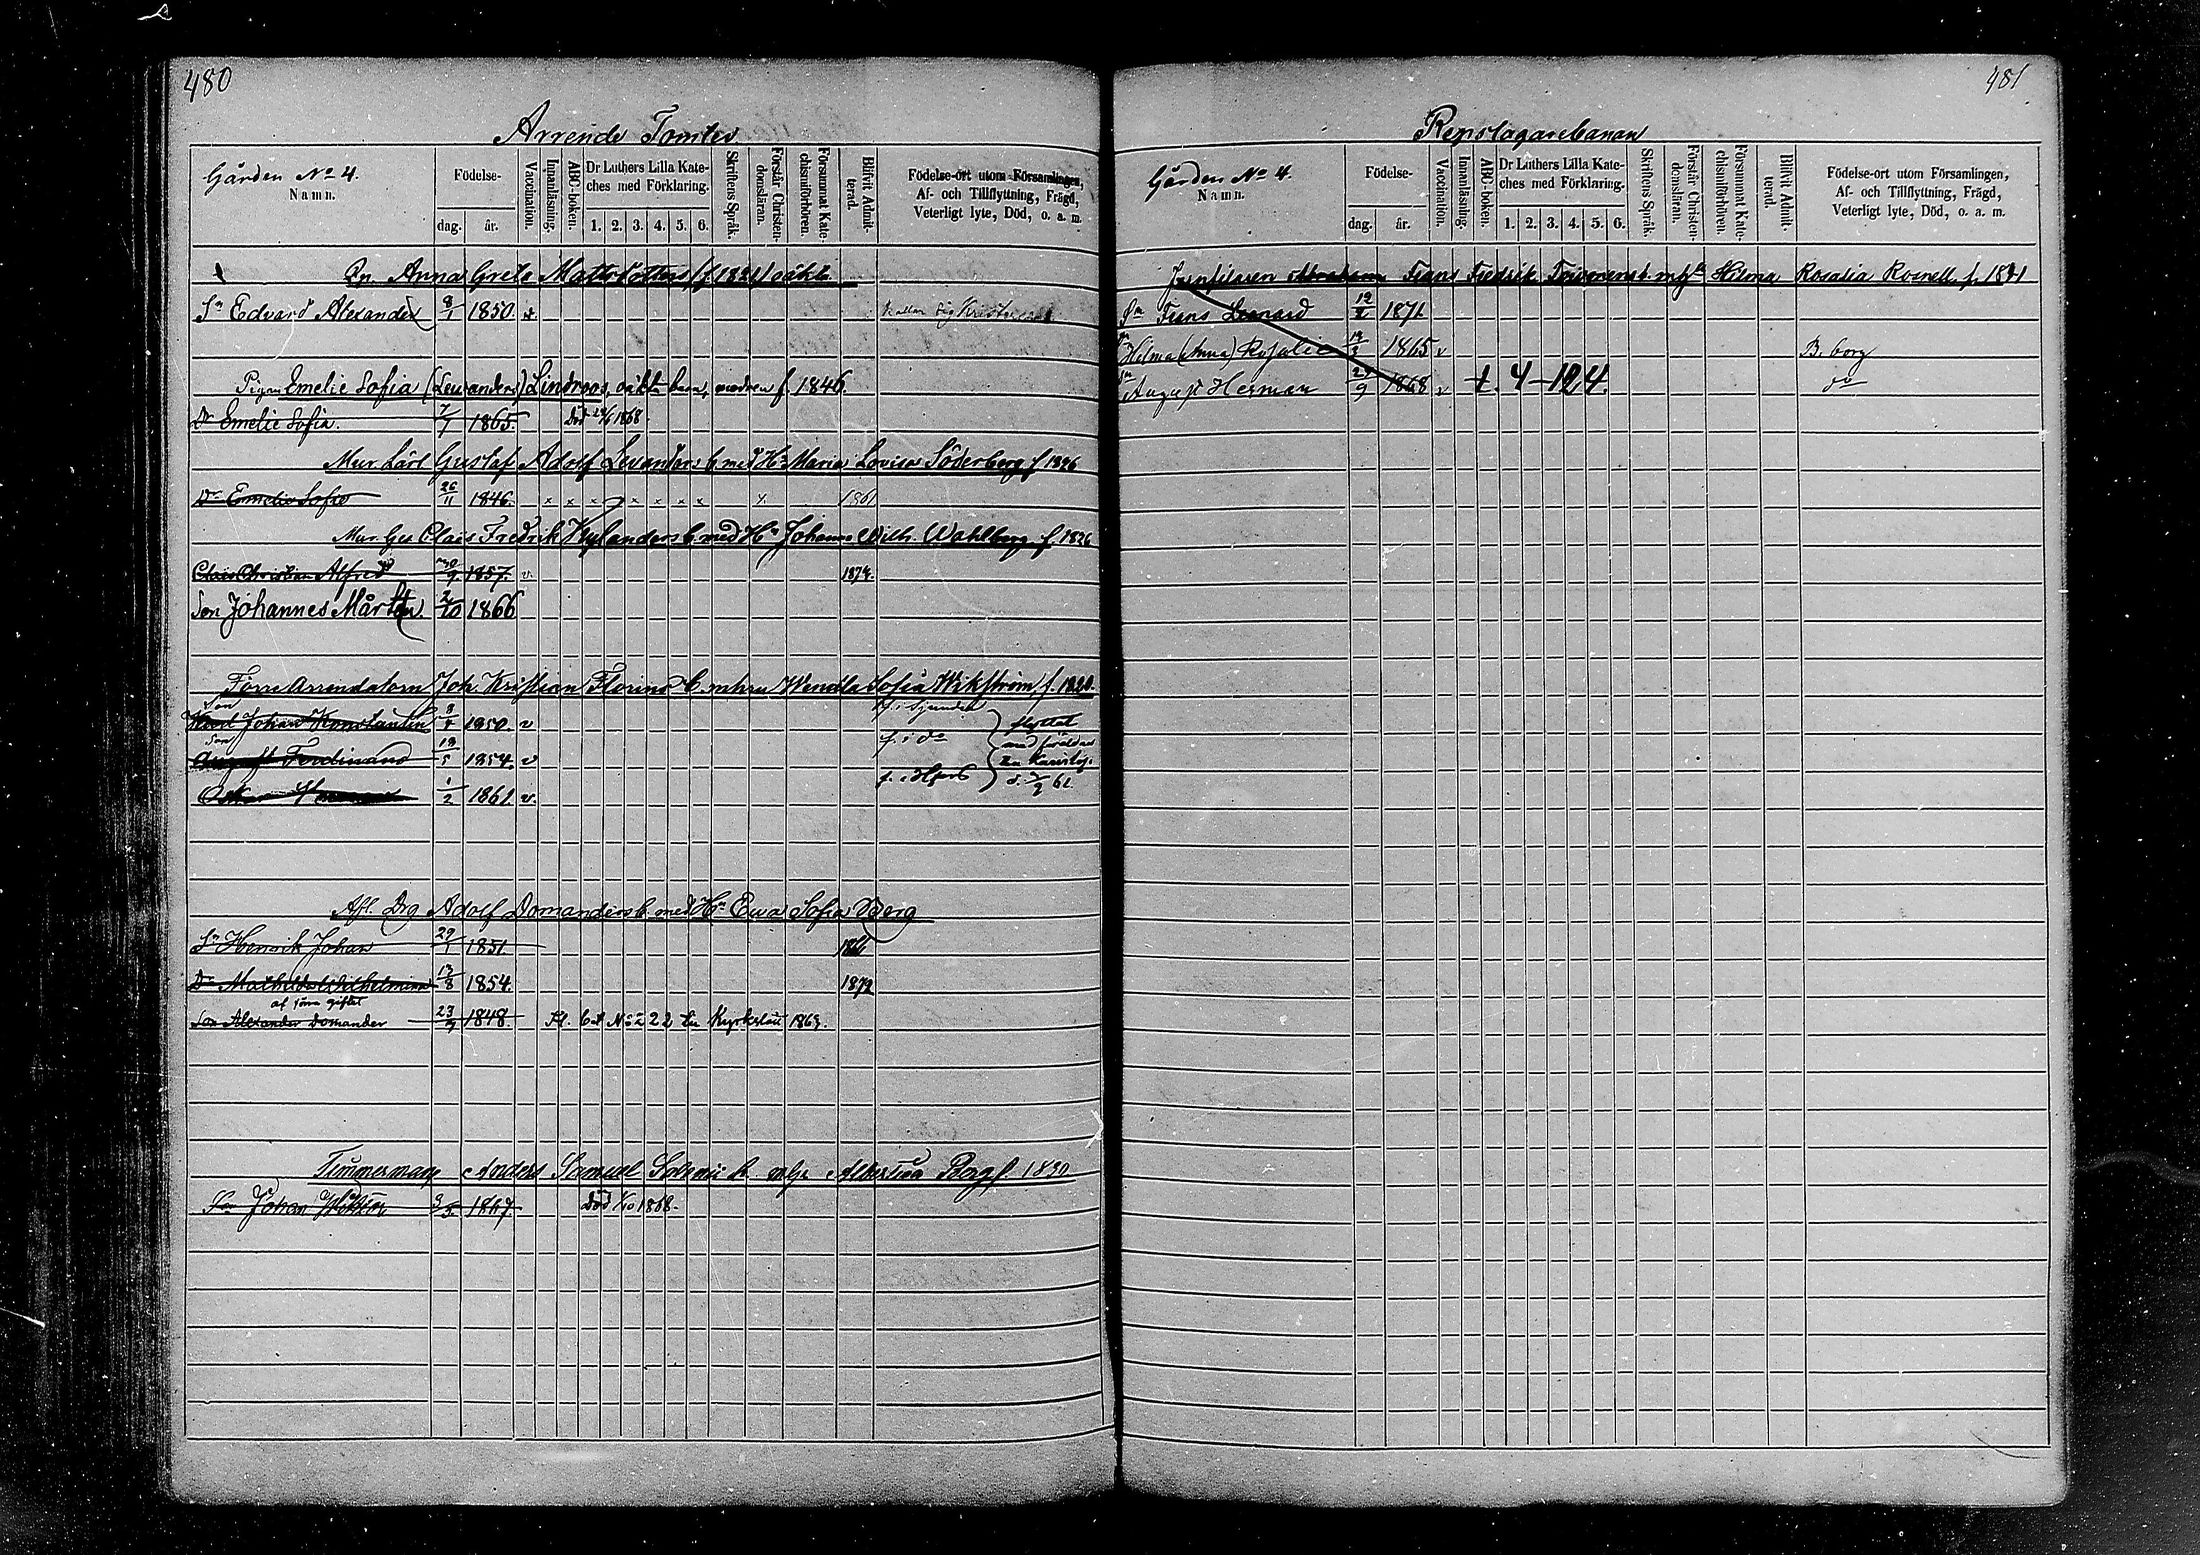 480
Arrende Tomter
Gården No 4.
Namn.
Födelse-
dag. år.
Vaccination.
Innanläsning.
ABC-boken.
Dr Luthers Lilla Kate-
ches med Förklaring.
1. 2. 3. 4. 5. 6.
Skriftens Språk.
Förstår Christen-
domsläran.
Försummat Kate-
chismiförhören.
Blifvit Admit-
terad.
Födelse-ort utom Församlingen,
Af- och Tillflyttning, Frägd,
Veterligt lyte, Död, o. a. m.
Anna Greta Mattsdotters (f 1821) oäkta
Sn Edvard Alexander 8/1 1850. kallar sig
Pigan Emelie Sofia (Levanders) Lindroos, oäkta barn, modren f. 1846.
Dr Emelie Sofia. 7/7 1865. Död 1868.
Mur. Lärl Gustaf Adolf Levanders b. med Hu Maria Lovisa Söderberg f 1826
Dr Emelie Sofie 26/11 1846. x x x x x x x x 1861
Mur. Ges Claes Fredrik Nylanders b. med Hu Johanna Wilh. Wahlberg f. 1826
Claes Christian Alfred 1857. v. 1874.
Son Johannes Mårten. 2/10 1866
Förre Arrendatorn Joh. Kristian Florins b. m hru Wendla Sofia Wikström f. 1820.
Son
Johan Konstantin 1850. v f. i Sjundeå
Son
August Ferdinand 18/5 1854. v f. i do
1/2 1861 v.
flyttat
med föräldrar
till
Afl. Drg Adolf Domanders b. med Hu Ewa Sofia Berg
Sn Henrik Johan 29/1 1851.
Dr Mathilda Wilhelmina 13/8 1854. 1872
af förra giftet
Son Alexander Domander 1848. Fl. bet No 22 till Kyrkslätt 1863.
Timmerman Anders Samuel b. m hu Albertina Berg f. 1830
Son Johan 1867. Död 1868.
481
Repslagarebanan
Gården No 4.
Namn.
Födelse-
dag. år.
Vaccination.
Innanläsning.
ABC-boken.
Dr Luthers Lilla Kate-
ches med Förklaring.
1. 2. 3. 4. 5. 6.
Skriftens Språk.
Förstår Christen-
domsläran.
Försummat Kate-
chismiförhören.
Blifvit Admit-
terad.
Födelse-ort utom Församlingen,
Af- och Tillflyttning, Frägd,
Veterligt lyte, Död, o. a. m.
Frans Fredrik b. m hu Hilma Rosalia
Sn Frans Leonard 1871
Hilma (Anna) Rosalie 1865 v B. borg
Sn August Herman 1868 v t. 4-124. do